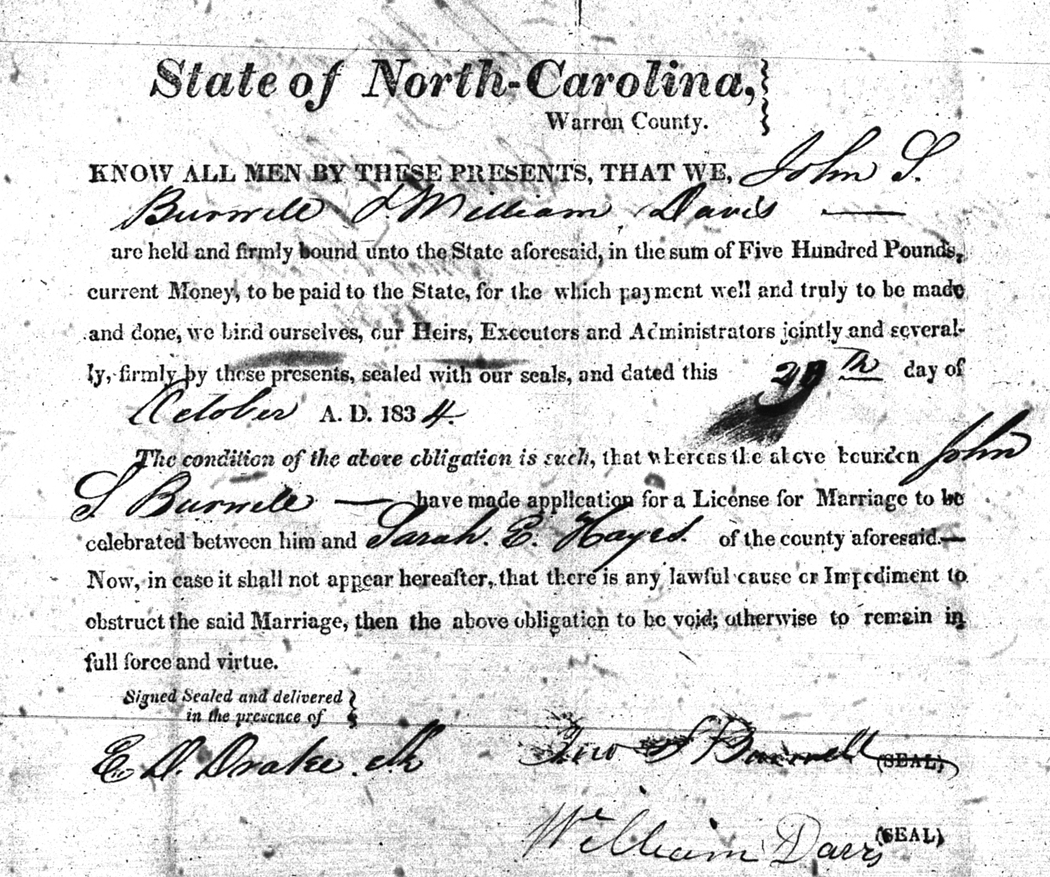 State of North-Carolina,
Warren County.
KNOW ALL MEN BY THESE PRESENTS, THAT WE, John S.
Burwell & William Davis —
are held and firmly bound unto the State aforesaid, in the sum of Five Hundred Pounds,
current Money, to be paid to the State, for the which payment well and truly to be made
and done, we bind ourselves, our Heirs, Executors and Administrators jointly and several-
ly, firmly by these presents, sealed with our seals, and dated this th day of
October A. D. 1834.
The condition of the above obligation is such, that whereas the above bounden John
S Burwell — have made application for a License for Marriage to be
celebrated between him and Sarah. E. Hayes. of the county aforesaid.—
Now, in case it shall not appear hereafter, that there is any lawful cause or Impediment to
obstruct the said Marriage, then the above obligation to be void; otherwise to remain in
full force and virtue.
Signed Sealed and delivered
in the presence of
E. D. Drake. clk
S Burwell (SEAL)
William Davis (SEAL)